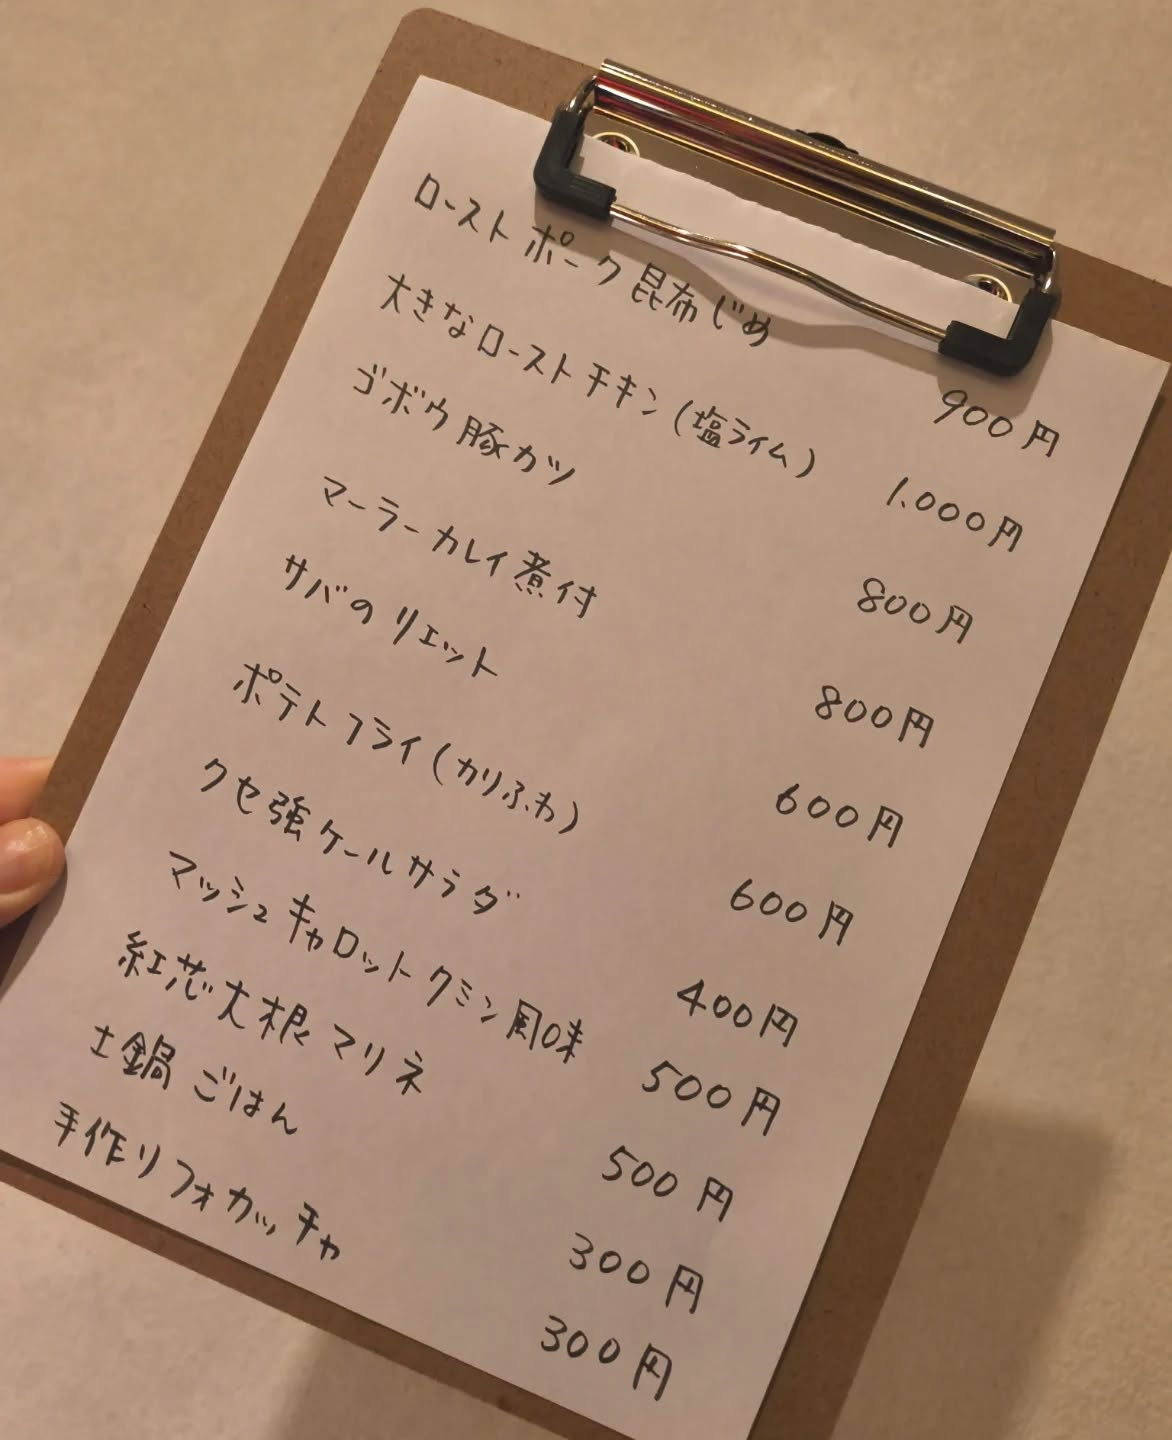 ローストポーク昆布じめ 900円
大きなローストチキン(塩ライム) 1.000円
ゴボウ豚カツ 800円
マーラーカレイ煮付 800円
サバのリエット 600円
ポテトフライ(カリふわ) 600円
クセ強ケールサラダ 400円
マッシュキャロットクミン風味 500円
紅芯大根マリネ 500円
土鍋ごはん 300円
手作りフォカッチャ 300円